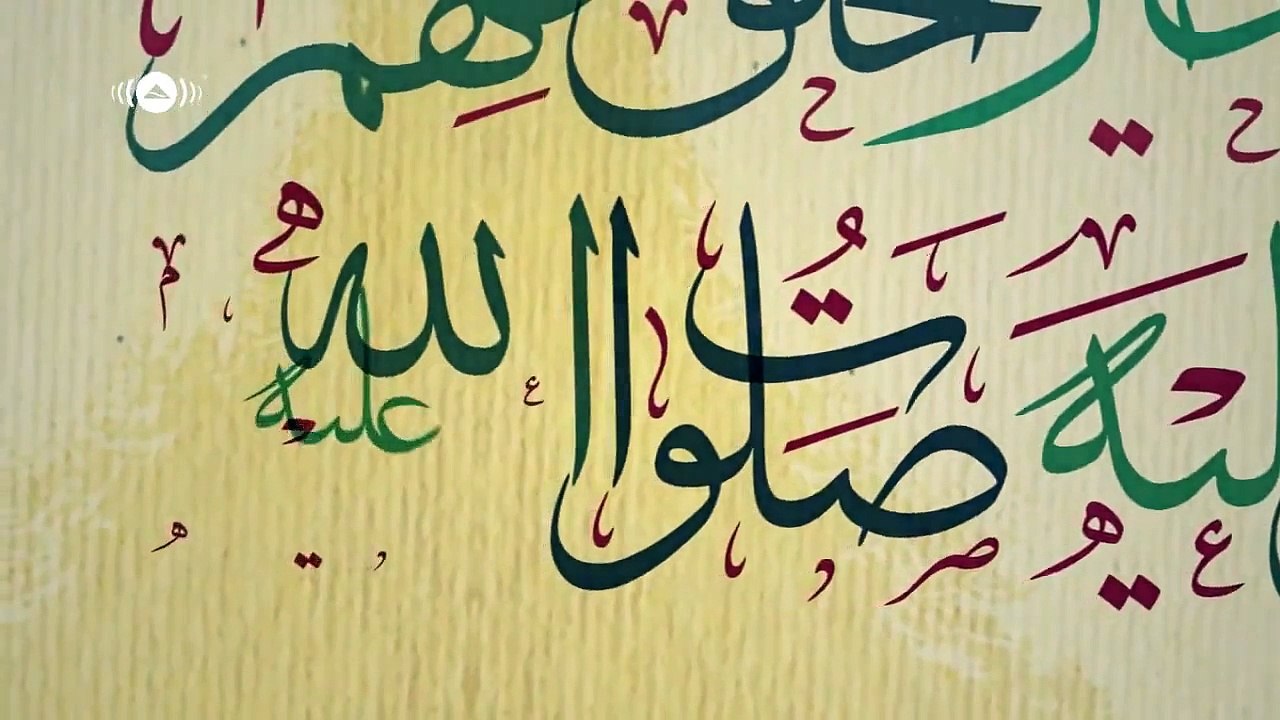 الخلق كلهم
عليه صلوات الله عليه